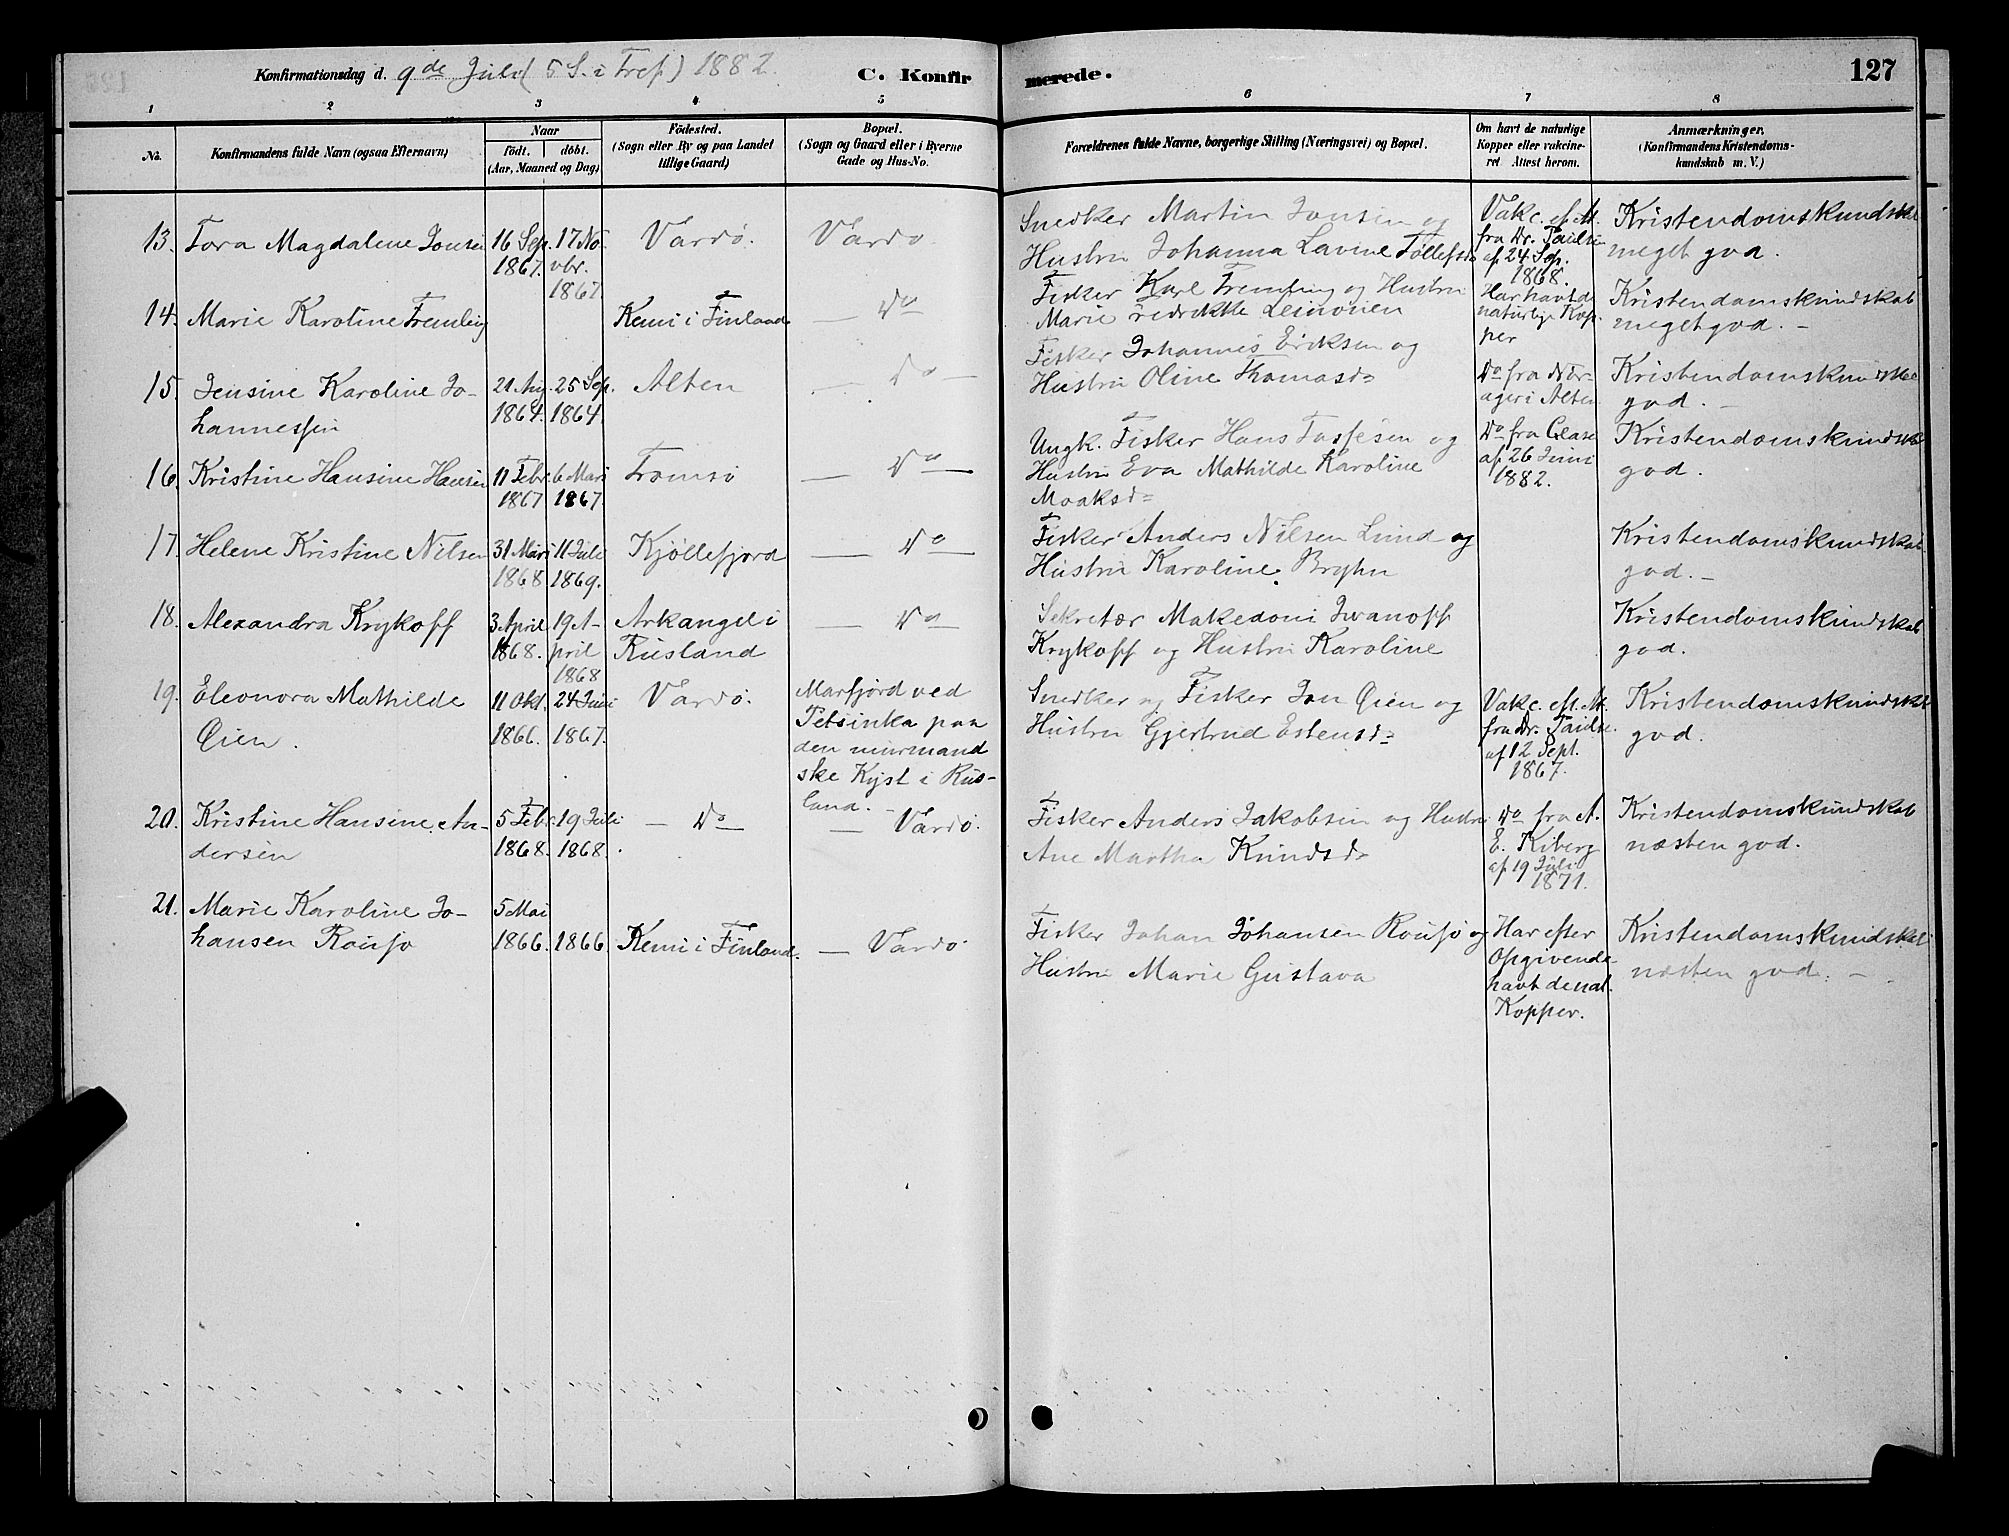 Konfirmationsdag d. 9de Juli (5 S. i Tref.) 1882
C. Konfirmerede.
127
1 2 3 4 5 6 7 8
No.
Konfirmandens fulde Navn (ogsaa Efternavn)
Naar
födt. döbt.
(Aar, Maaned og Dag)
Födested.
(Sogn eller By og paa Landet
tillige Gaard)
Bopæl.
(Sogn og Gaard eller i Byerne
Gade og Hus-No.
Forældrenes fulde Navne, borgerlige Stilling (Næringsvei) og Bopæl.
Om havt de naturlige
Kopper eller vakcine-
ret Attest herom.
Anmærkninger.
(Konfirmandens Kristendoms-
kundskab m. V.)
13. Tora Magdalene Jonsen
16 Sep.
1867.
17 No-
vbr.
1867.
Vardö.
Vardö.
Snedker Martin Jonsen og
Hustru Johanna Lavine Tollefsd=
Vakc. ef. A.
fra Dr.
af 24 Sep.
1868.
Kristendomskundskab
meget god.
14. Marie Karoline Fremling
Kemi i Finland
— Do
Fisker Karl Fremling og Hustru
Marie
Har havt d.
naturlige Kop-
per
Kristendomskundskab
meget god. —
15. Jensine Karoline Jo-
hannessen
21 Aug.
1864.
25 Sep.
1864.
Alten
— Do —
Fisker Johannes Eriksen og
Hustru Oline Thomasd=
Do fra
i Alten
Kristendomskundskab
god. —
16. Kristine Hansine Hansen
11 Febr.
1867
6 Mars
1867.
Tromsö
— Do —
Ungk. Fisker Hans og
Hustru Eva Mathilde Karoline
Moaksd=
Do fra
af 26 Juni
1882.
Kristendomskundskab
god.
17. Helene Kristine Nilsen
31 Mars
1868
11 Juli
1869.
Kjöllefjord
— Do
Fisker Anders Nilsen Lund og
Hustru Karoline Bryhn
Kristendomskundskab
god. —
18. Alexandra Krykoff
3 April
1868.
19 A-
pril
1868
Arkangel i
Rusland
— Do
Sekretær Makedoni Iwanoff
Krykoff og Hustru Karoline
Kristendomskundskab
god.
19. Eleonora Mathilde
Öien.
11 Okt.
1866.
24 Juni
1867.
Vardö.
Marfjord ved
Petsinka paa
den murmand
ske Kyst i Rus-
land. —
Snedker og Fisker Jon Öien og
Hustru Gjertrud Estensd=
Vakc. eft. A.
fra Dr.
af 12 Sept.
1867.
Kristendomskundskab
god.
20. Kristine Hansine An-
dersen
5 Feb.
1868.
19 Juli
1868.
— Do —
— Vardö.
Fisker Anders Jakobsen og Hustru
Ane Martha Knudsd=
Do fra A.
E. Kiberg
af 19 Juli
1871.
Kristendomskundskab
næsten god.
21. Marie Karoline Jo-
hansen Rousjo
5 Mai
1866.
1866
Kemi i Finland.
— Vardö
Fisker Johan Johansen Rousjö og
Hustru Marie Gustava
Har efter
Opgivende
havt de nat.
Kopper.
Kristendomskundskab
næsten god. —